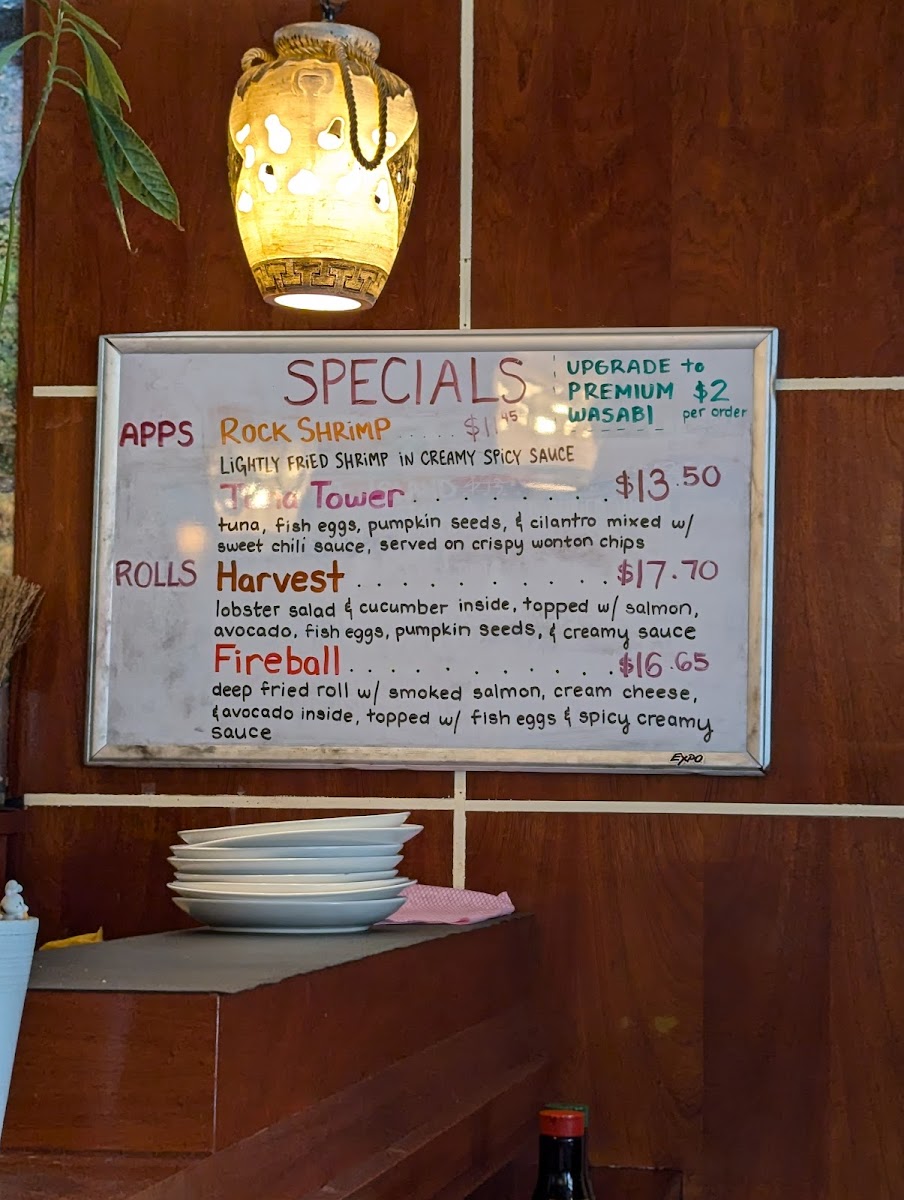 SPECIALS
UPGRADE to
PREMIUM $2
WASABI per order
APPS ROCK SHRIMP .....
LIGHTLY FRIED SHRIMP IN CREAMY SPICY SAUCE
Tuna Tower.........$13.50
tuna, fish eggs, pumpkin seeds, & cilantro mixed w/
sweet chili sauce, served on crispy wonton chips
ROLLS Harvest..........$17.70
lobster salad & cucumber inside, topped w/ salmon,
avocado, fish eggs, pumpkin seeds, & creamy sauce
Fireball..........$16.65
deep fried roll w/ smoked salmon, cream cheese,
& avocado inside, topped w/ fish eggs & spicy creamy
sauce
EXPO